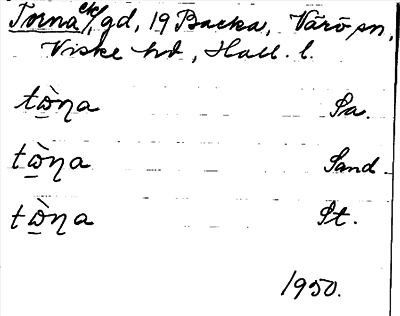 Torna ck/, gd, 19 Backa, Värö sn,
Viske hd, Hall. l.
tὼ̱ꞃa Pa.
tὼ̱ꞃa Sand
tὼ̱ꞃa St.
1950.